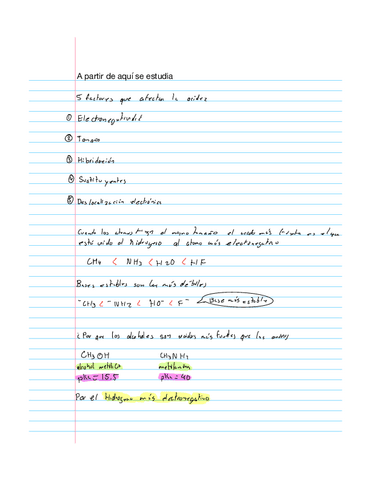 A partir de aquí se estudia
5 factores que afectan la acidez
① Electronegatividad
② Tamaño
③ Hibridación
④ Sustituyentes
⑤ Deslocalización electrónica
Cuando los atomos el mismo tamaño el acido más fuerte es el que
está unido el hidrogeno al atomo más electronegativo
CH4 < NH3 < H2O < HF
Bases estables son las más debiles
⁻CH3 < ⁻NH2 < HO⁻ < F⁻ Base más estable
¿Por que los alcoholes son acidos más fuertes que las aminas
CH3OH CH3NH2
alcohol metilico metilamina
pKa = 15.5 pKa = 40
Por el hidrogeno más electronegativo